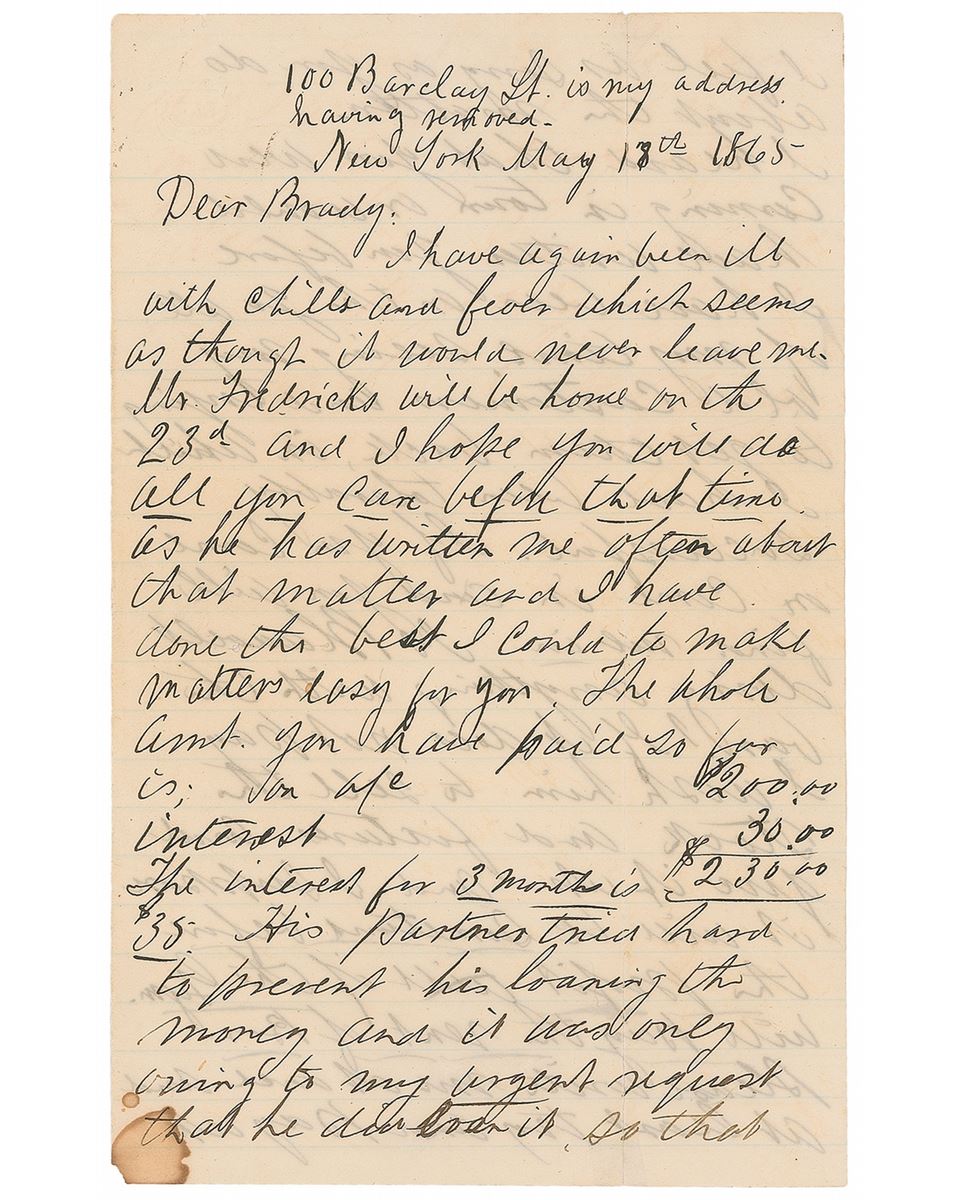 100 Barclay St. is my address
having removed.
New York May 18th 1865
Dear Brady.
I have again been ill
with chills and fever which seems
as though it would never leave me.
Mr. Fredricks will be home on the
23d and I hope you will do
all you can before that time.
as he has written me often about
that matter and I have
done the best I could to make
matters easy for you. The whole
amt. you have paid so far
is; on a/c $200.00
interest 30.00
The interest for 3 months is $230.00
$35. His partner tried hard
to prevent his loaning the
money and it was only
owing to my urgent request
that he did loan it, so that